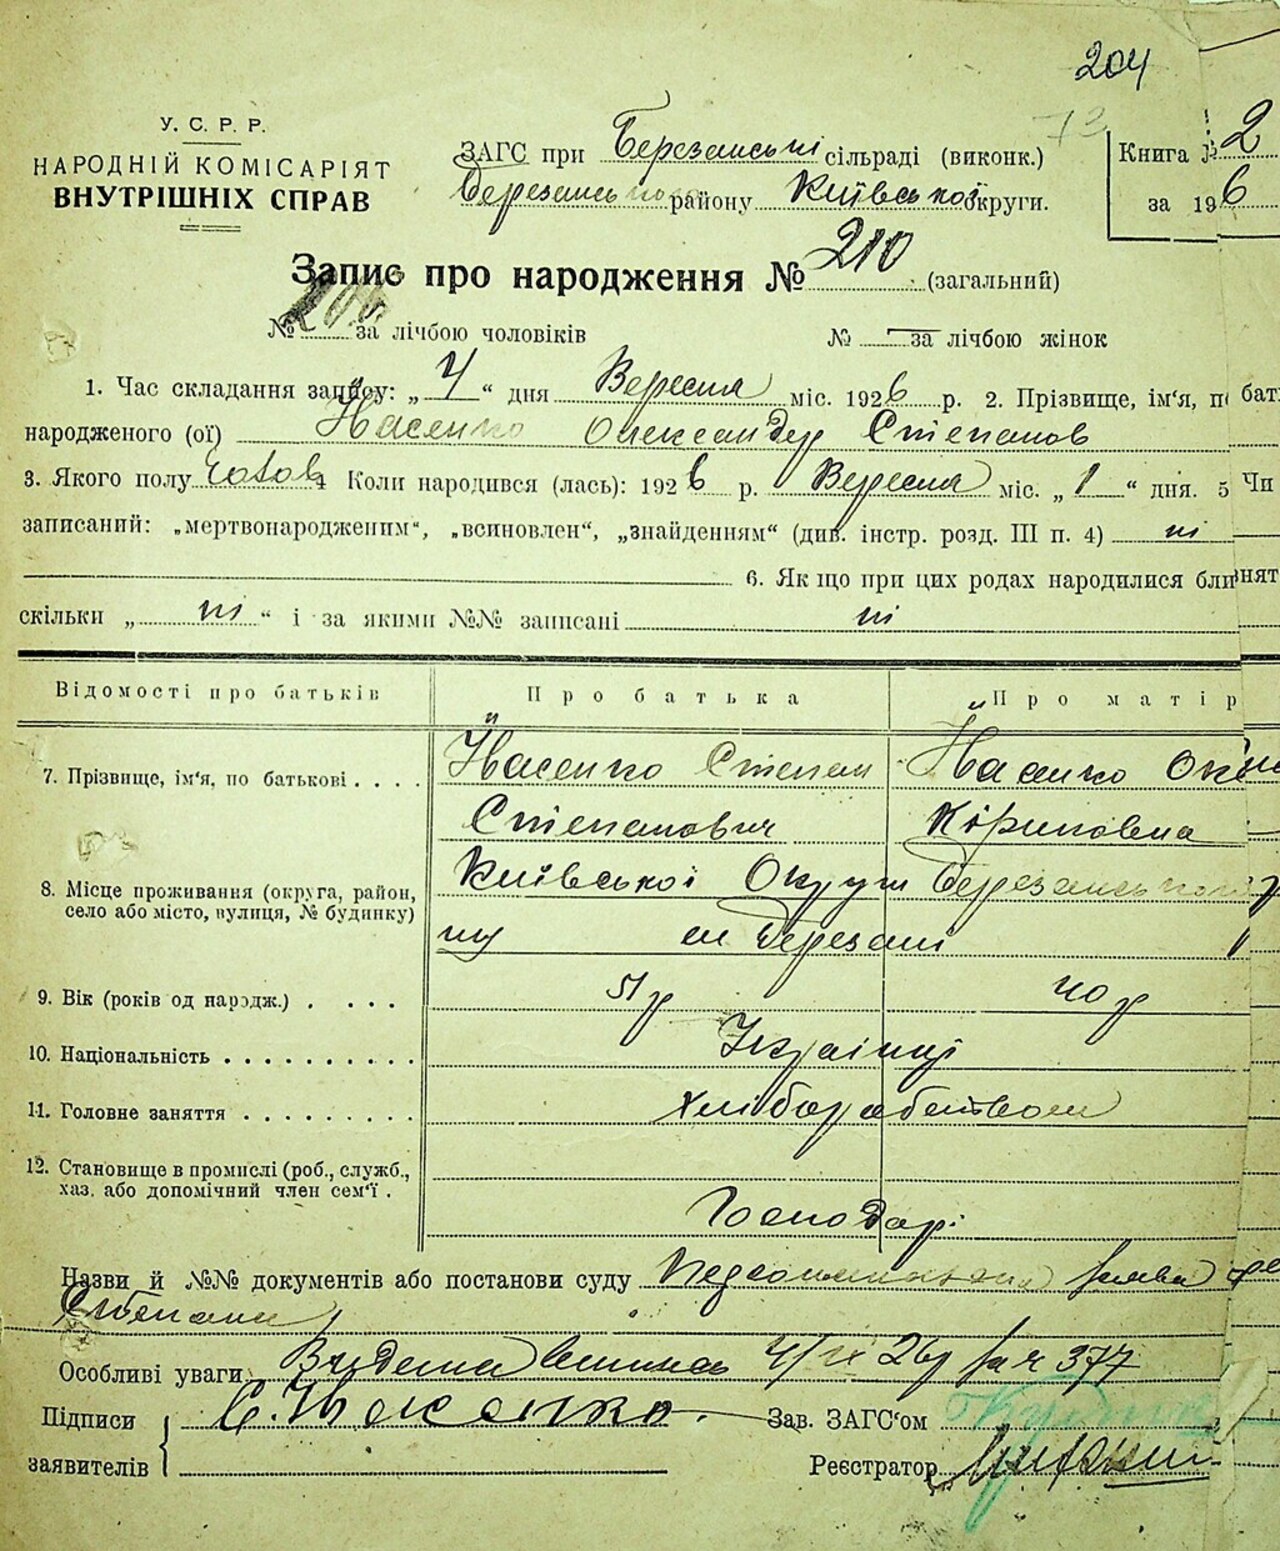 204
У. С. Р. Р.
НАРОДНІЙ КОМІСАРІЯТ
ВНУТРІШНІХ СПРАВ
ЗАГС при Березанські сільраді (виконк.)
Березанського району Київської округи.
Книга № 2
за 1926
Запис про народження № 210 (загальний)
№ за лічбою чоловіків № за лічбою жінок
1. Час складання запису: „ 4 “ дня Вересня міс. 1926 р. 2. Прізвище, ім‘я, п
бат
народженого (ої) Насенко Олександер Степанов
3. Якого полу Чолов 4 Коли народився (лась): 1926 р. Вересня міс. „ 1 “ дня. 5 Чи
записаний: „мертвонародженим“, „всиновлен“, „знайденням“ (див. інстр. розд. III п. 4) ні
6. Як що при цих родах народилися бли
нят
скільки „ ні “ і за якими №№ записані ні
Відомості про батьків Про батька Про матір
7. Прізвище, ім‘я, по батькові . . . . Насенко Степан Насенко
Степанович Кириловна
8. Місце проживання (округа, район, село або місто, вулиця, № будинку) Київської Округи Березанського
ну м Березані
9. Вік (років од народж.) . . . . 51 р 40 р
10. Національність . . . . . . . . . . Українці
11. Головне заняття . . . . . . . . . Хліборобством
12. Становище в промислі (роб., служб., хаз. або допомічний член сем‘ї . Господарі
Назви й №№ документів або постанови суду заява
Особливі уваги Видана виписа 4/IX 26 р за № 377
Підписи заявителів С. Насенко Зав. ЗАГС‘ом
Реєстратор